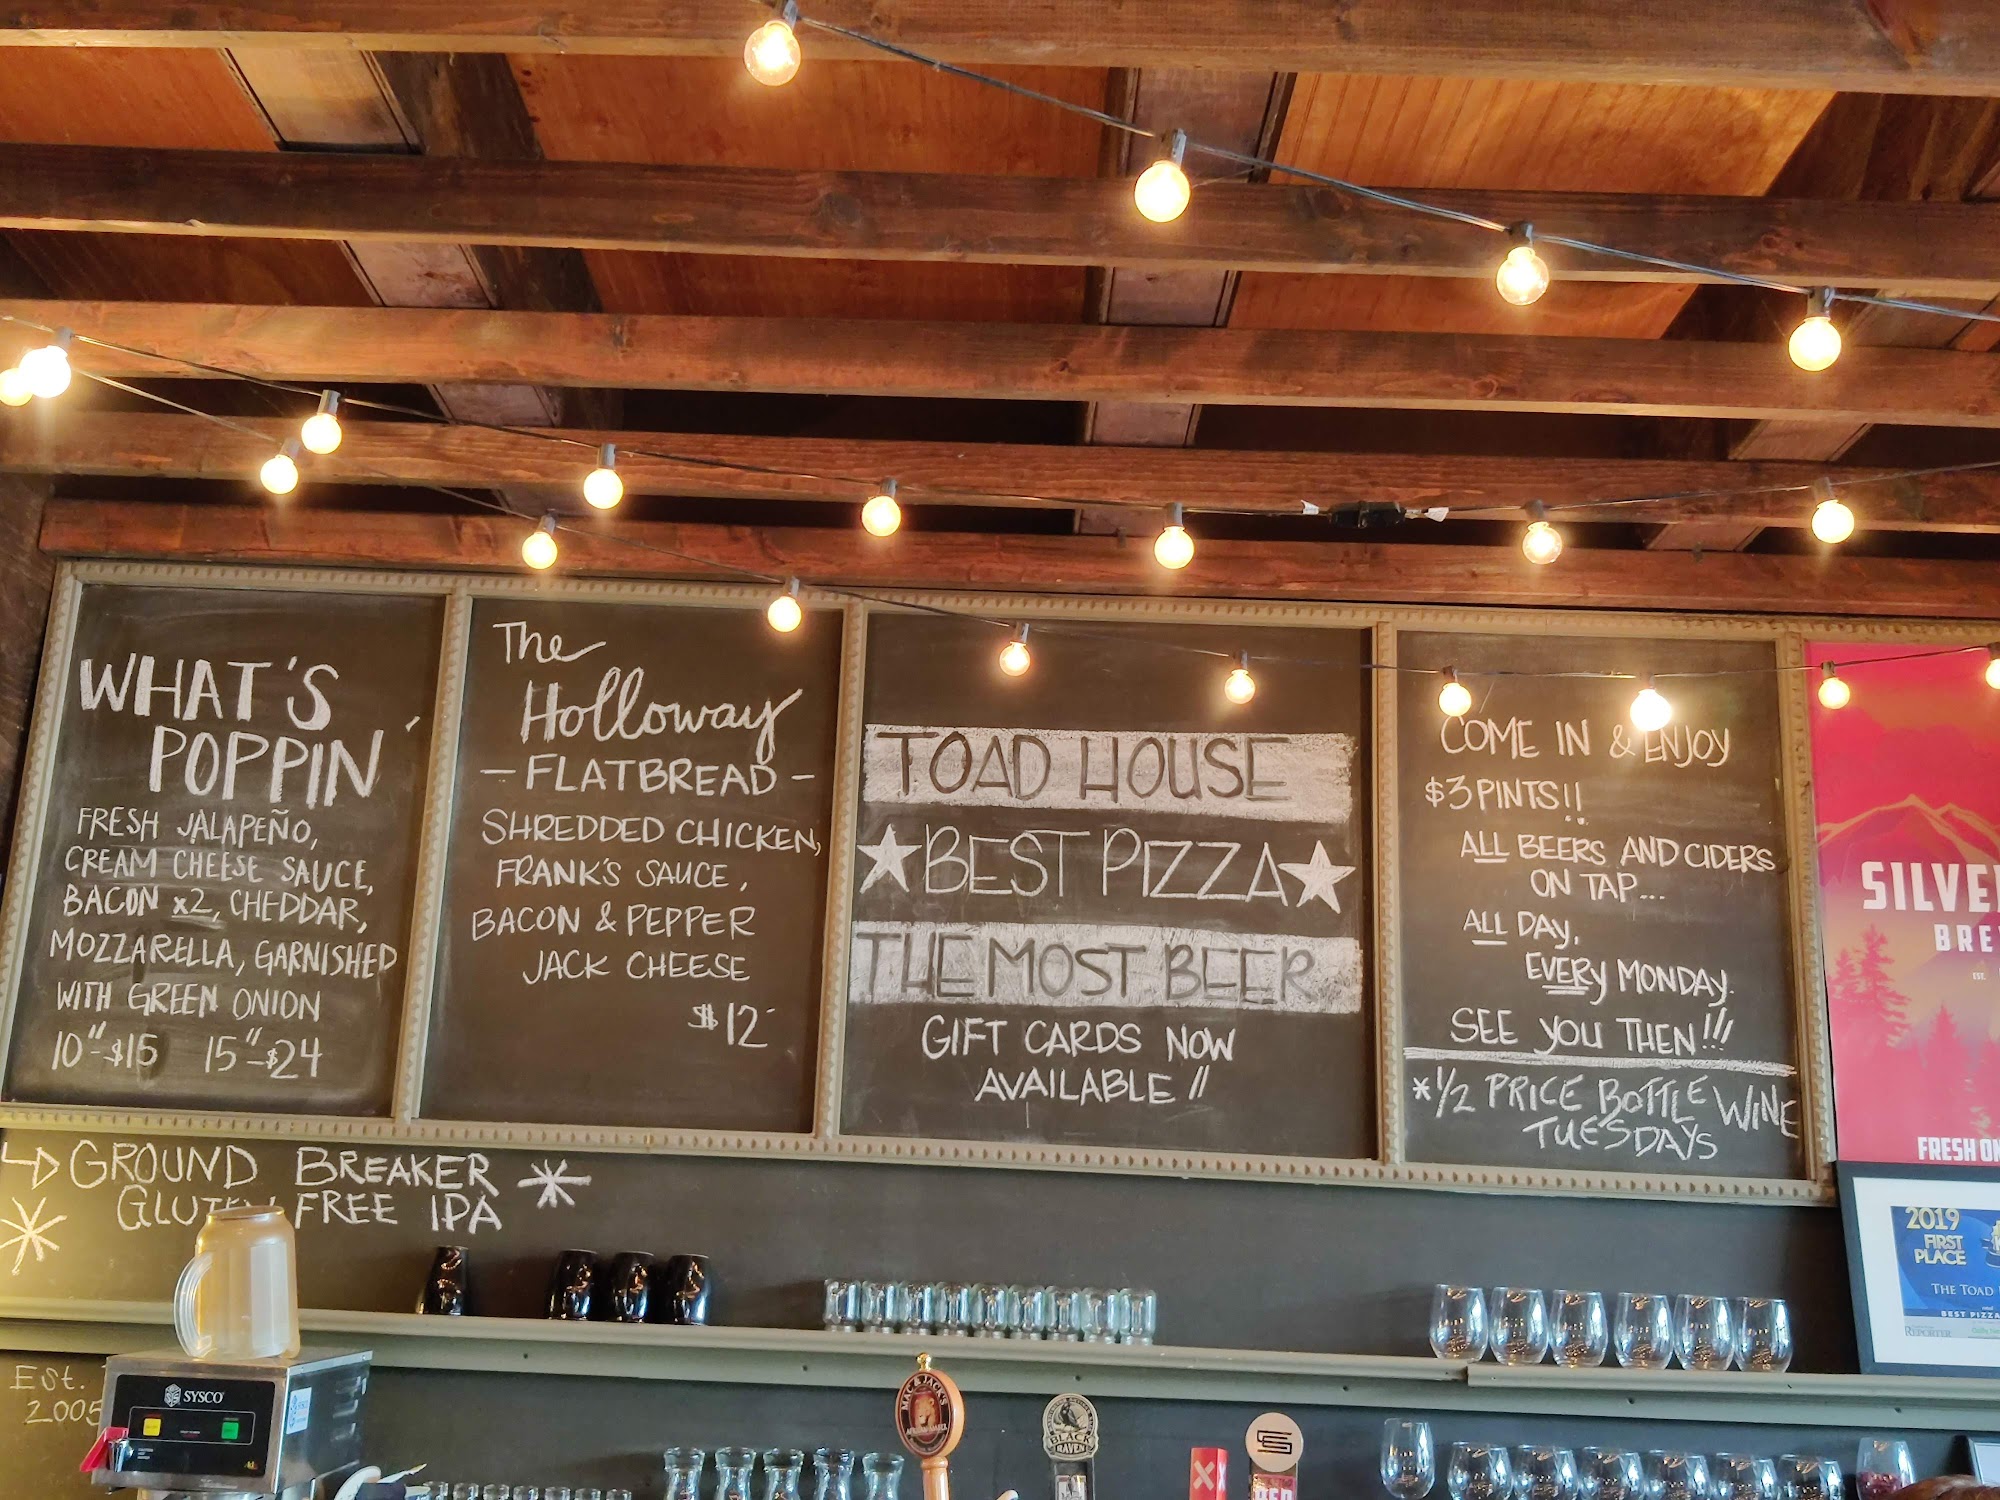 WHAT'S
POPPIN'
FRESH JALAPEÑO,
CREAM CHEESE SAUCE,
BACON x2, CHEDDAR,
MOZZARELLA, GARNISHED
WITH GREEN ONION
10"-$15 15"-$24
The
Holloway
- FLATBREAD -
SHREDDED CHICKEN,
FRANK'S SAUCE,
BACON & PEPPER
JACK CHEESE
$12
TOAD HOUSE
BEST PIZZA
THE MOST BEER
GIFT CARDS NOW
AVAILABLE!!
COME IN & ENJOY
$3 PINTS!!
ALL BEERS AND CIDERS
ON TAP...
ALL DAY,
EVERY MONDAY.
SEE YOU THEN!!!
*1/2 PRICE BOTTLE WINE
TUESDAYS
GROUND BREAKER
GLUTEN FREE IPA
Est.
2005
SYSCO
MAC & JACK'S
BLACK
RAVEN
SILVE
BRE
EST.
FRESH ON
2019
FIRST
PLACE
THE TOAD
BEST PIZZA
REPORTER